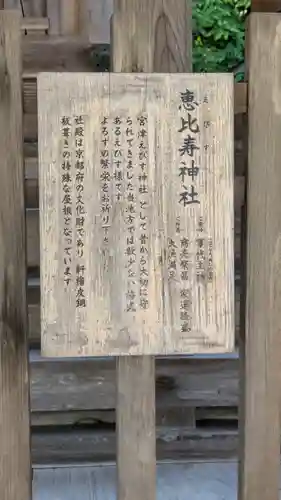 えびす
恵比寿神社
ご祭神 事代主神
ご利益 商売繁昌 家運隆盛
大漁満足
宮津えびす神社 として昔から大切に守
られてきました当地方では数少ない
あるえびす様です
よろずの繁栄をお祈り下さい
社殿は京都府の文化財であり 軒檜皮銅
板葺きの特殊な屋根となっています。